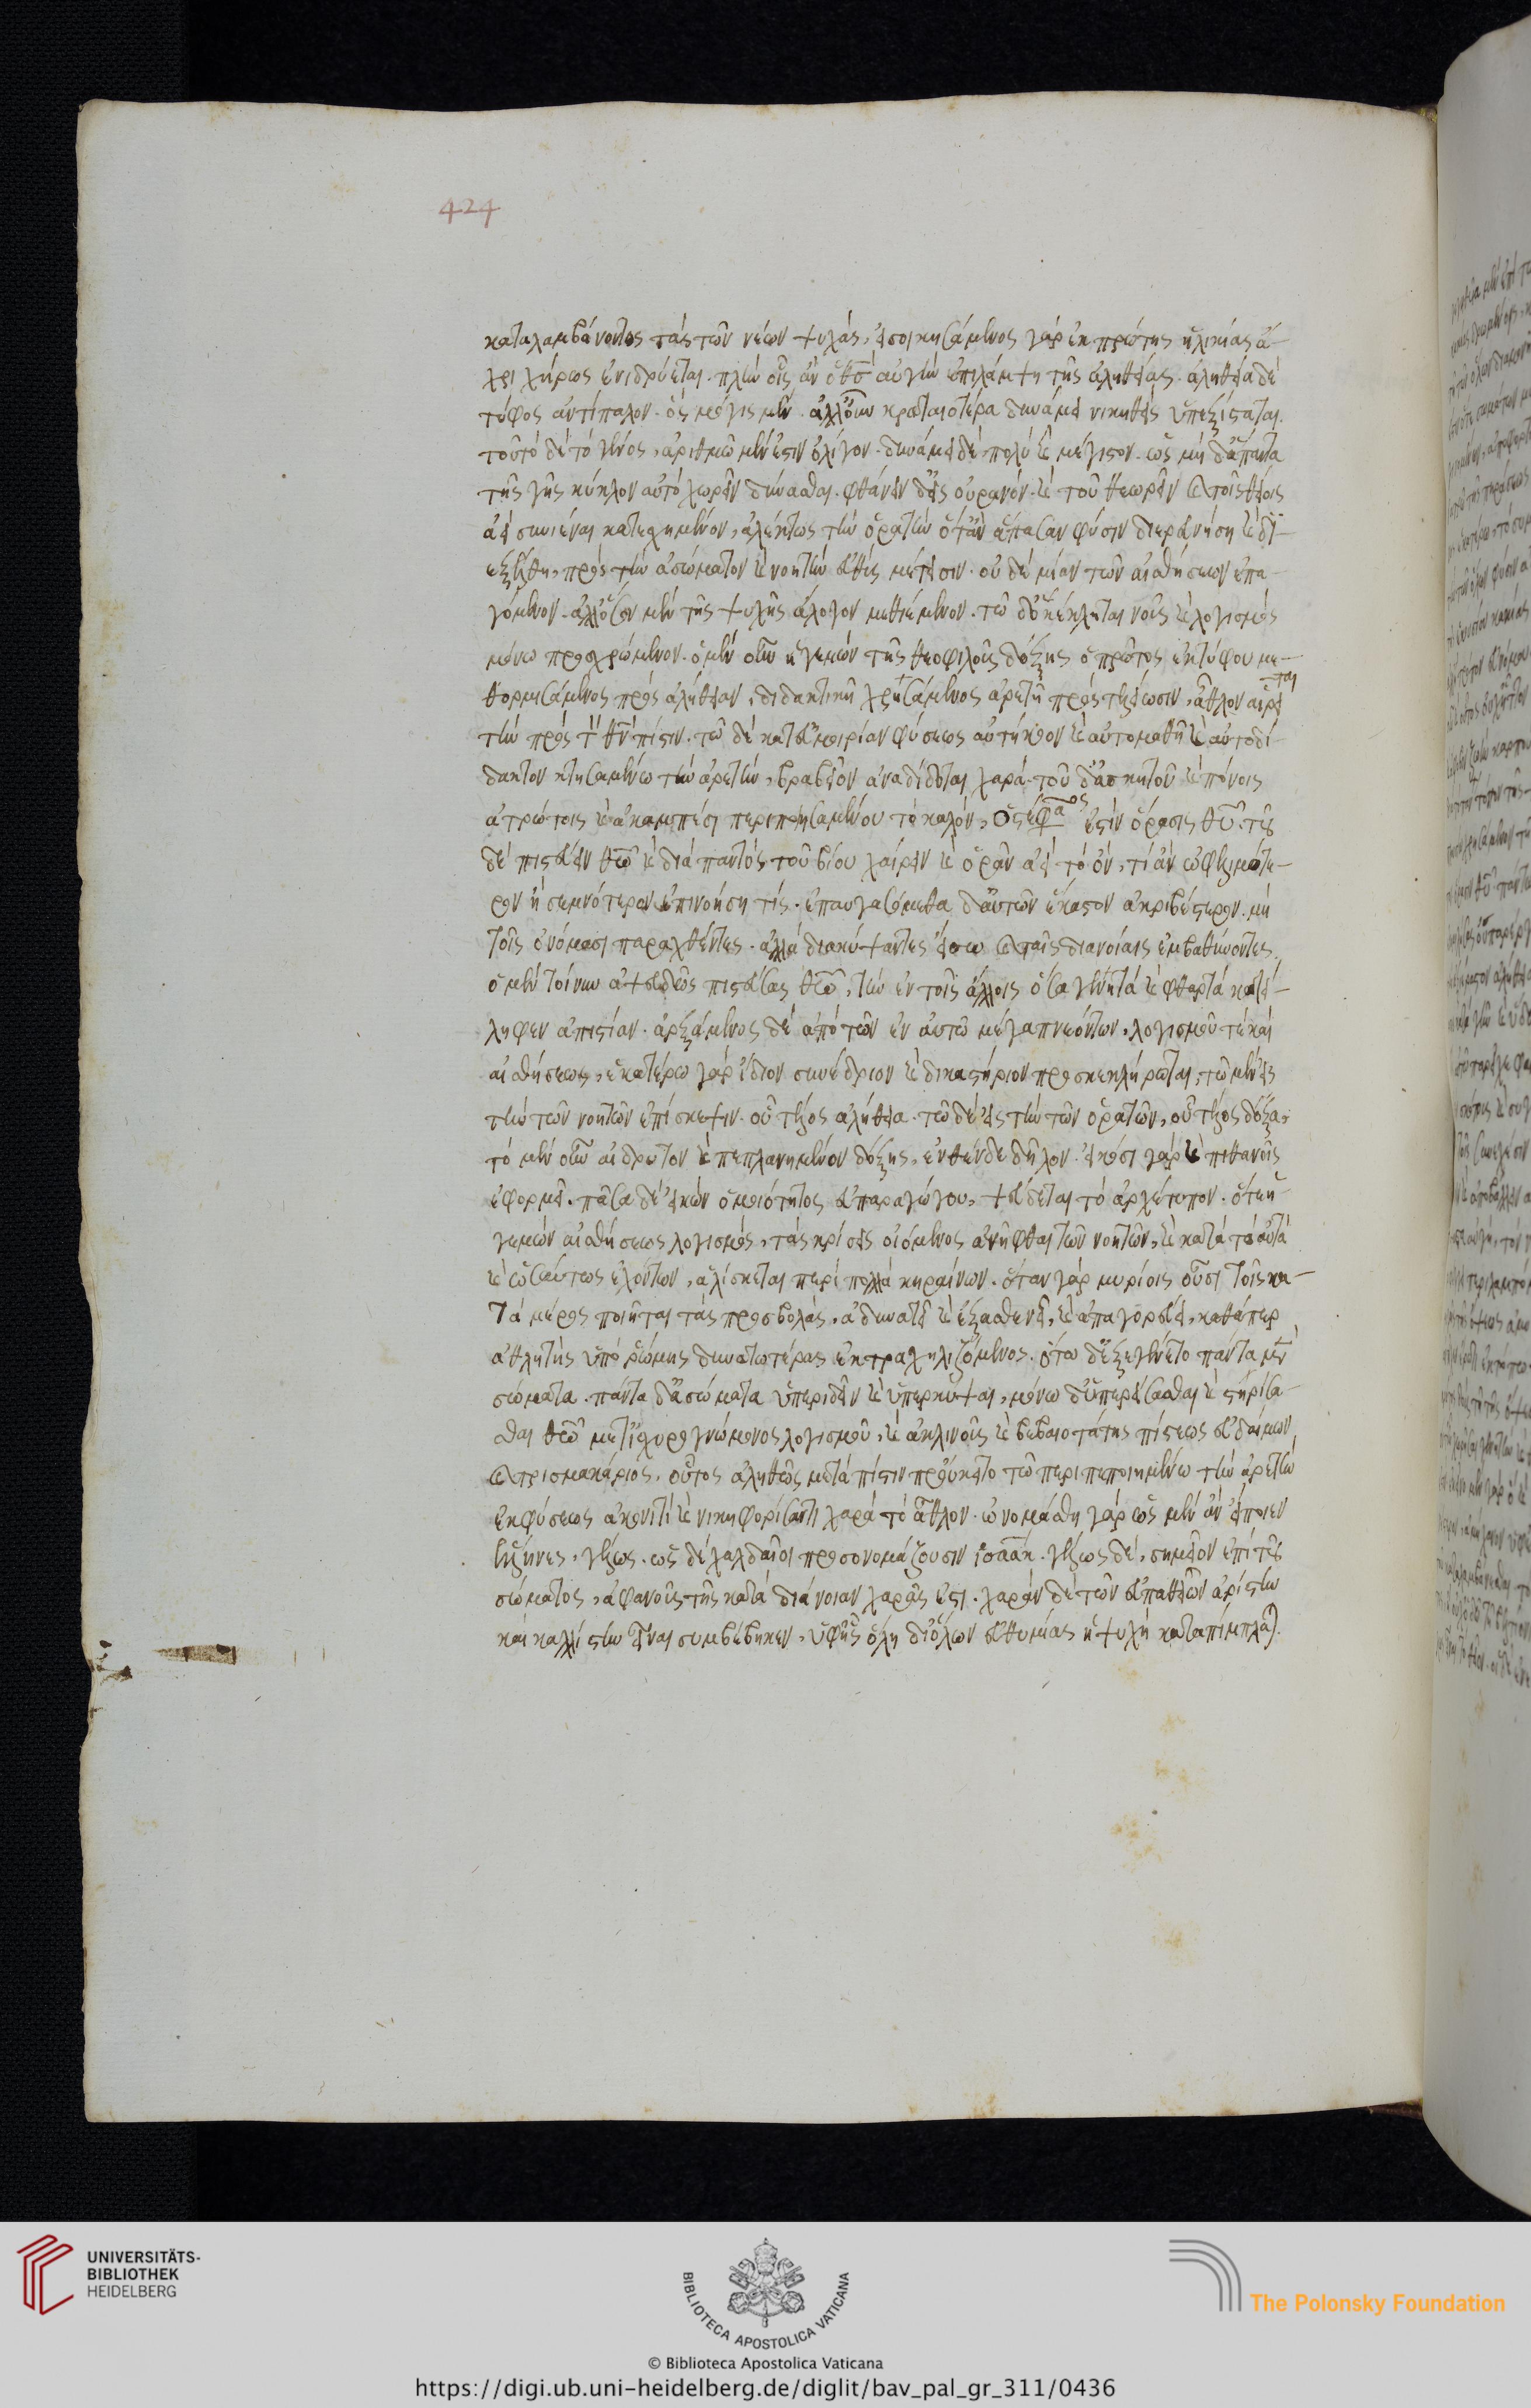 καταλαμβάνοντος τὰς τῶν νέων ψυχάς, εἰσοικησάμενος γὰρ ἐκ πρώτης ἡλικίας ἄ-
χρι γήρως ἐνιδρύεται. πλὴν οἷς ἂν ὁ θς αὐγὴν ἐπιλάμψη τῆς ἀληθείας. ἀληθεία δὲ
τύφος ἀντίπαλον. ὃς μόγις μὲν. ἀλλ' οὖν κραταιοτέρα δυνάμει νικηθεὶς ὑπεξίσταται.
τοῦτο δὲ τὸ γένος, ἀριθμῶ μὲν ἐστιν ὀλίγον. δυνάμει δὲ πολὺ καὶ μέγιστον. ὡς μὴ δ' ἅπαντα
τῆς γῆς κύκλον αὐτὸ χωρεῖν δύνασθαι. φθάνειν δ' εἰς οὐρανόν. καὶ τοῦ θεωρεῖν καὶ τοῖς θείοις
ἀεὶ συνιέναι κατεχημένον, ἀλέκτως τὴν ὁρατὴν ὅταν ἅπασαν φύσιν διερευνήση καὶ δι-
εξέλθη, πρὸς τὴν ἀσώματον καὶ νοητὴν εὐθὺς μέτεισιν. οὐ δὲ μίαν τῶν αἰσθήσεων ἐπα-
γόμενον. ἀλλ' ὅσον μὲν τῆς ψυχῆς ἄλογον μεθιέμενον. τῶ δ' ὃ κέκληται νοῦς καὶ λογισμὸς
μόνω προσχρώμενον. ὁ μὲν οὖν ἡγεμὼν τῆς θεοφιλοῦς δόξης ὁ πρῶτος ἐκ τύφου με-
θορμισάμενος πρὸς ἀλήθειαν, διδακτικῆ χρησάμενος ἀρετῆ πρὸς τελείωσιν, ἆθλον αἴρεται
τὴν πρὸς τὸν θν πίστιν. τῶ δὲ κατ' εὐμοιρίαν φύσεως αὐτήκοον καὶ αὐτομαθῆ καὶ αὐτοδί-
δακτον κτησαμένω τὴν ἀρετὴν, βραβεῖον ἀναδίδοται χαρά. τοῦ δ' ἀσκητοῦ καὶ πόνοις
ἀτρώτοις καὶ ἀκαμπέσι περιποιησαμένου τὸ καλόν, ὁ στέφανος ἐστὶν ὅρασις θυ. τοῦ
δὲ πιστεύειν θῶ καὶ διὰ παντὸς τοῦ βίου χαίρειν καὶ ὁρᾶν ἀεὶ τὸ ὄν, τί ἂν ὠφελιμώτε-
ρον ἢ σεμνότερον ἐπινοήση τίς. ἐπαυγασόμεθα δ' αὐτῶν ἕκαστον ἀκριβέστερον. μὴ
τοῖς ὀνόμασι παραχθέντες. ἀλλὰ διακύψαντες εἴσω καὶ ταῖς διανοίαις ἐμβαθύνοντες.
ὁ μὲν τοίνυν ἀψευδῶς πιστεύσας θῶ, τὴν ἐν τοῖς ἄλλοις ὅσα γενητὰ καὶ φθαρτὰ κατεί-
ληφεν ἀπιστίαν. ἀρξάμενος δὲ ἀπὸ τῶν ἐν αὑτῶ μέγα πνεόντων, λογισμοῦ τὲ καὶ
αἰσθήσεως, ἑκατέρω γὰρ ἴδιον συνέδριον καὶ δικαστήριον προσκεκλήρωται, τῶ μὲν εἰς
τὴν τῶν νοητῶν ἐπίσκεψιν. οὗ τέλος ἀλήθεια. τῶ δὲ εἰς τὴν τῶν ὁρατῶν, οὗ τέλος δόξα.
τὸ μὲν οὖν ἀίδρυτον καὶ πεπλανημένον δόξης, ἐνθένδε δῆλον. εἰκόσι γὰρ καὶ πιθανοῖς
ἐφορμεῖ. πᾶσα δὲ εἰκὼν ὁμοιότητος εὐπαραγώγου, ψεύδεται τὸ ἀρχέτυπον. ὅτε ἡ-
γεμὼν αἰσθήσεως λογισμὸς, τὰς κρίσεις οἰόμενος ἀνῆφθαι τῶν νοητῶν, καὶ κατὰ τὰ αὐτὰ
καὶ ὡσαύτως ἐχόντων, ἁλίσκεται περὶ πολλὰ κηραίνων. ὅταν γὰρ μυρίοις οὖσι τοῖς κα-
τὰ μέρος ποιῆται τὰς προσβολάς, ἀδυνατεῖ καὶ ἐξασθενεῖ, καὶ ἀπαγορεύει, καθάπερ
ἀθλητὴς ὑπὸ ῥώμης δυνατωτέρας ἐκτραχηλιζόμενος. ὅτω δ' ἐξεγένετο πάντα μὲν
σώματα. πάντα δ' ἀσώματα ὑπεριδεῖν καὶ ὑπερκύψαι, μόνω δ' ὑπερείσασθαι καὶ στηρίσα-
σθαι θῶ μετ' ἰσχυρογνώμονος λογισμοῦ, καὶ ἀκλινοῦς καὶ βεβαιοτάτης πίστεως εὐδαίμων
καὶ τρισμακάριος. οὗτος ἀληθῶς μετὰ πίστιν προύκειτο τῶ περιπεποιημένω τὴν ἀρετὴν
ἐκ φύσεως ἀκονιτὶ καὶ νικηφορίσαντι χαρὰ τὸ ἆθλον. ὠνομάσθη γὰρ ὡς μὲν ἂν εἴποιεν
ἕλληνες, γέλως. ὡς δὲ χαλδαῖοι προσονομάζουσιν ἰσαάκ. γέλως δὲ, σημεῖον ἐπὶ τοῦ
σώματος, ἀφανοῦς τῆς κατὰ διάνοιαν χαρᾶς ἐστι. χαρὰν δὲ τῶν εὐπαθειῶν ἀρίστην
καὶ καλλίστην εἶναι συμβέβηκεν, ὑφ' ἧς ὅλη δι' ὅλων εὐθυμίας ἡ ψυχὴ καταπίμπλαται.
424
UNIVERSITÄTS-
BIBLIOTHEK
HEIDELBERG
BIBLIOTECA APOSTOLICA VATICANA
The Polonsky Foundation
© Biblioteca Apostolica Vaticana
https://digi.ub.uni-heidelberg.de/diglit/bav_pal_gr_311/0436